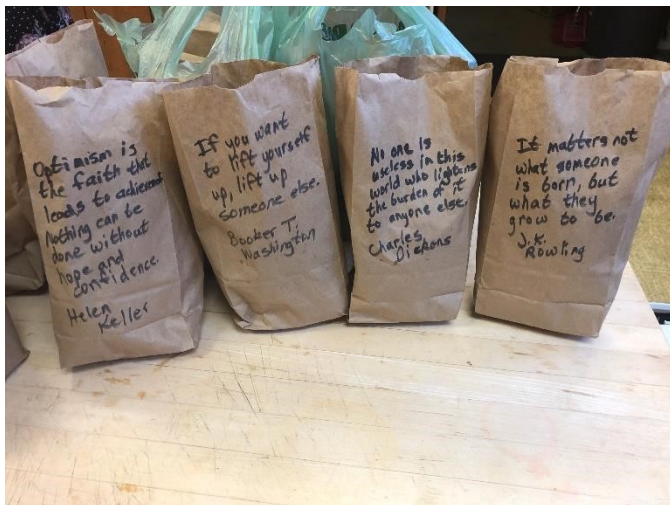 Optimism is
the faith that
leads to achievement
nothing can be
done without
hope and
confidence.
Helen
Keller
If you want
to lift yourself
up, lift up
someone else.
Booker T.
Washington
No one is
useless in this
world who lightens
the burden of it
to anyone else.
Charles
Dickens
It matters not
what someone
is born, but
what they
grow to be.
J.K.
Rowling